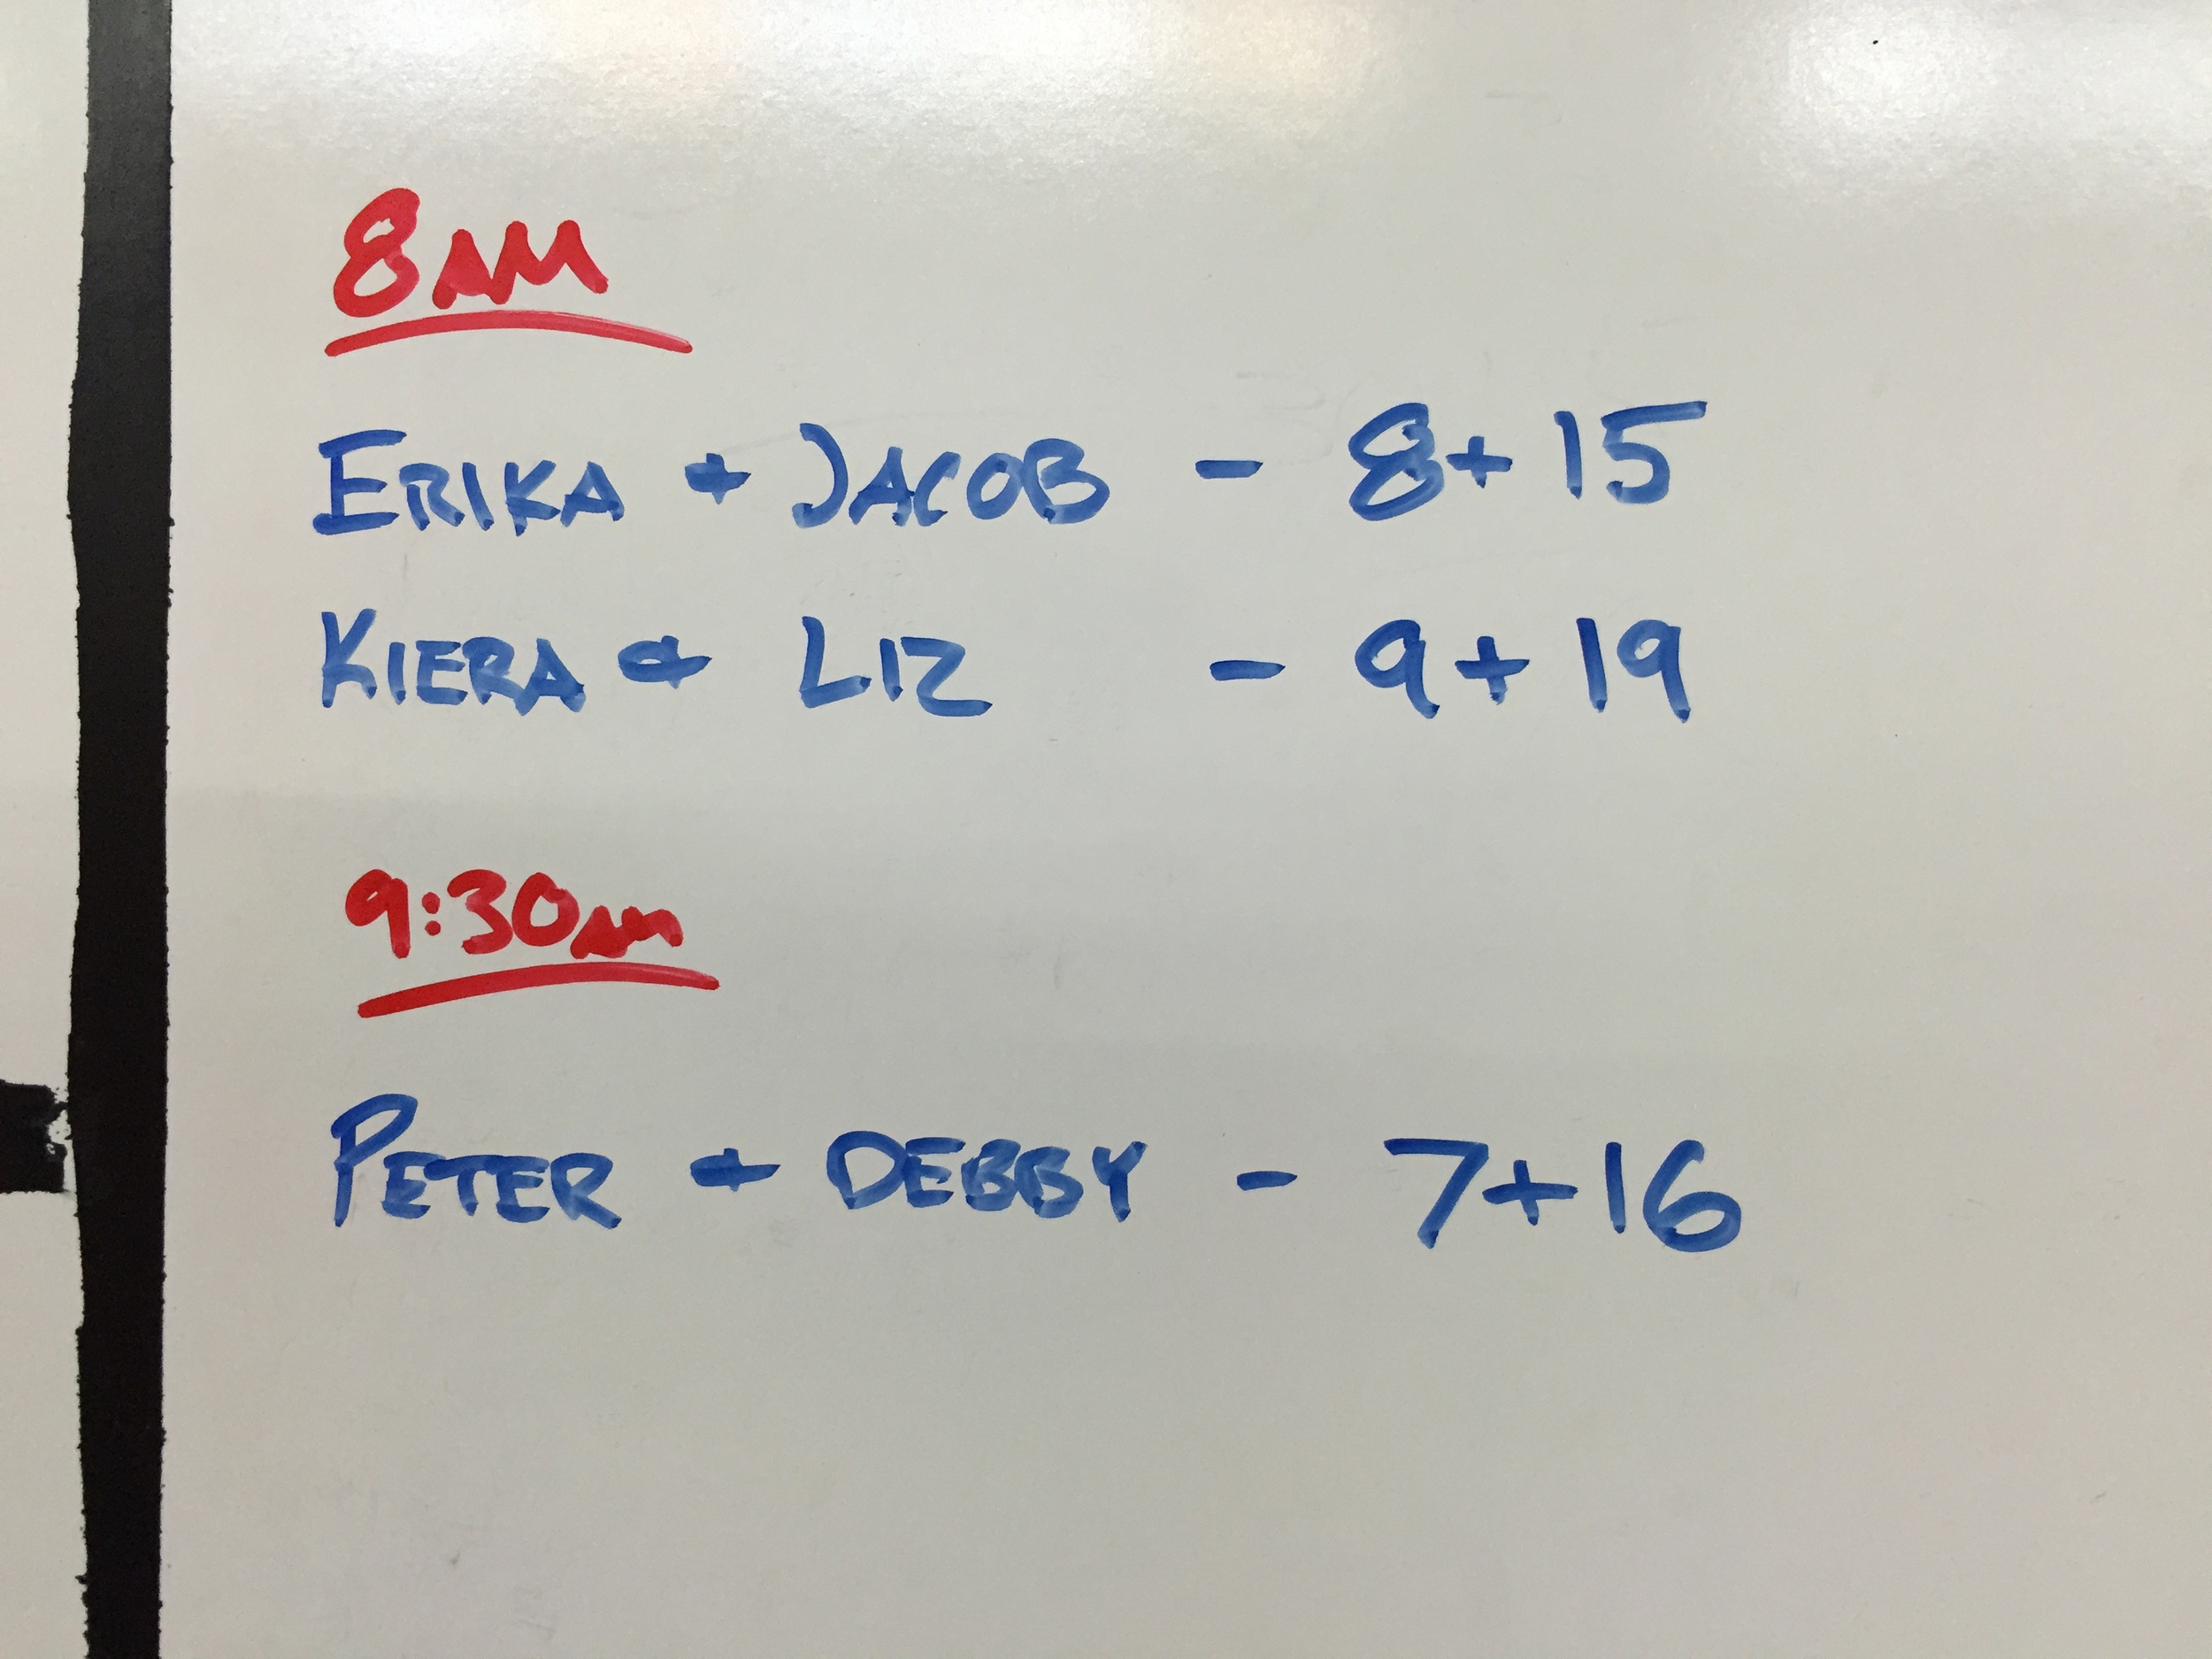 8AM
ERIKA + JACOB - 8+15
KIERA + LIZ - 9+19
9:30AM
PETER + DEBBY - 7+16